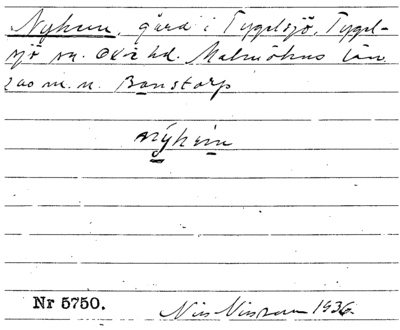 Nyhem, gård i Tygelsjö, Tygel-
sjö sn. Oxie hd. Malmöhus län.
200 m. n. Bonstorp
nỳhem
Nr 5750.
Nils Nilsson 1936.